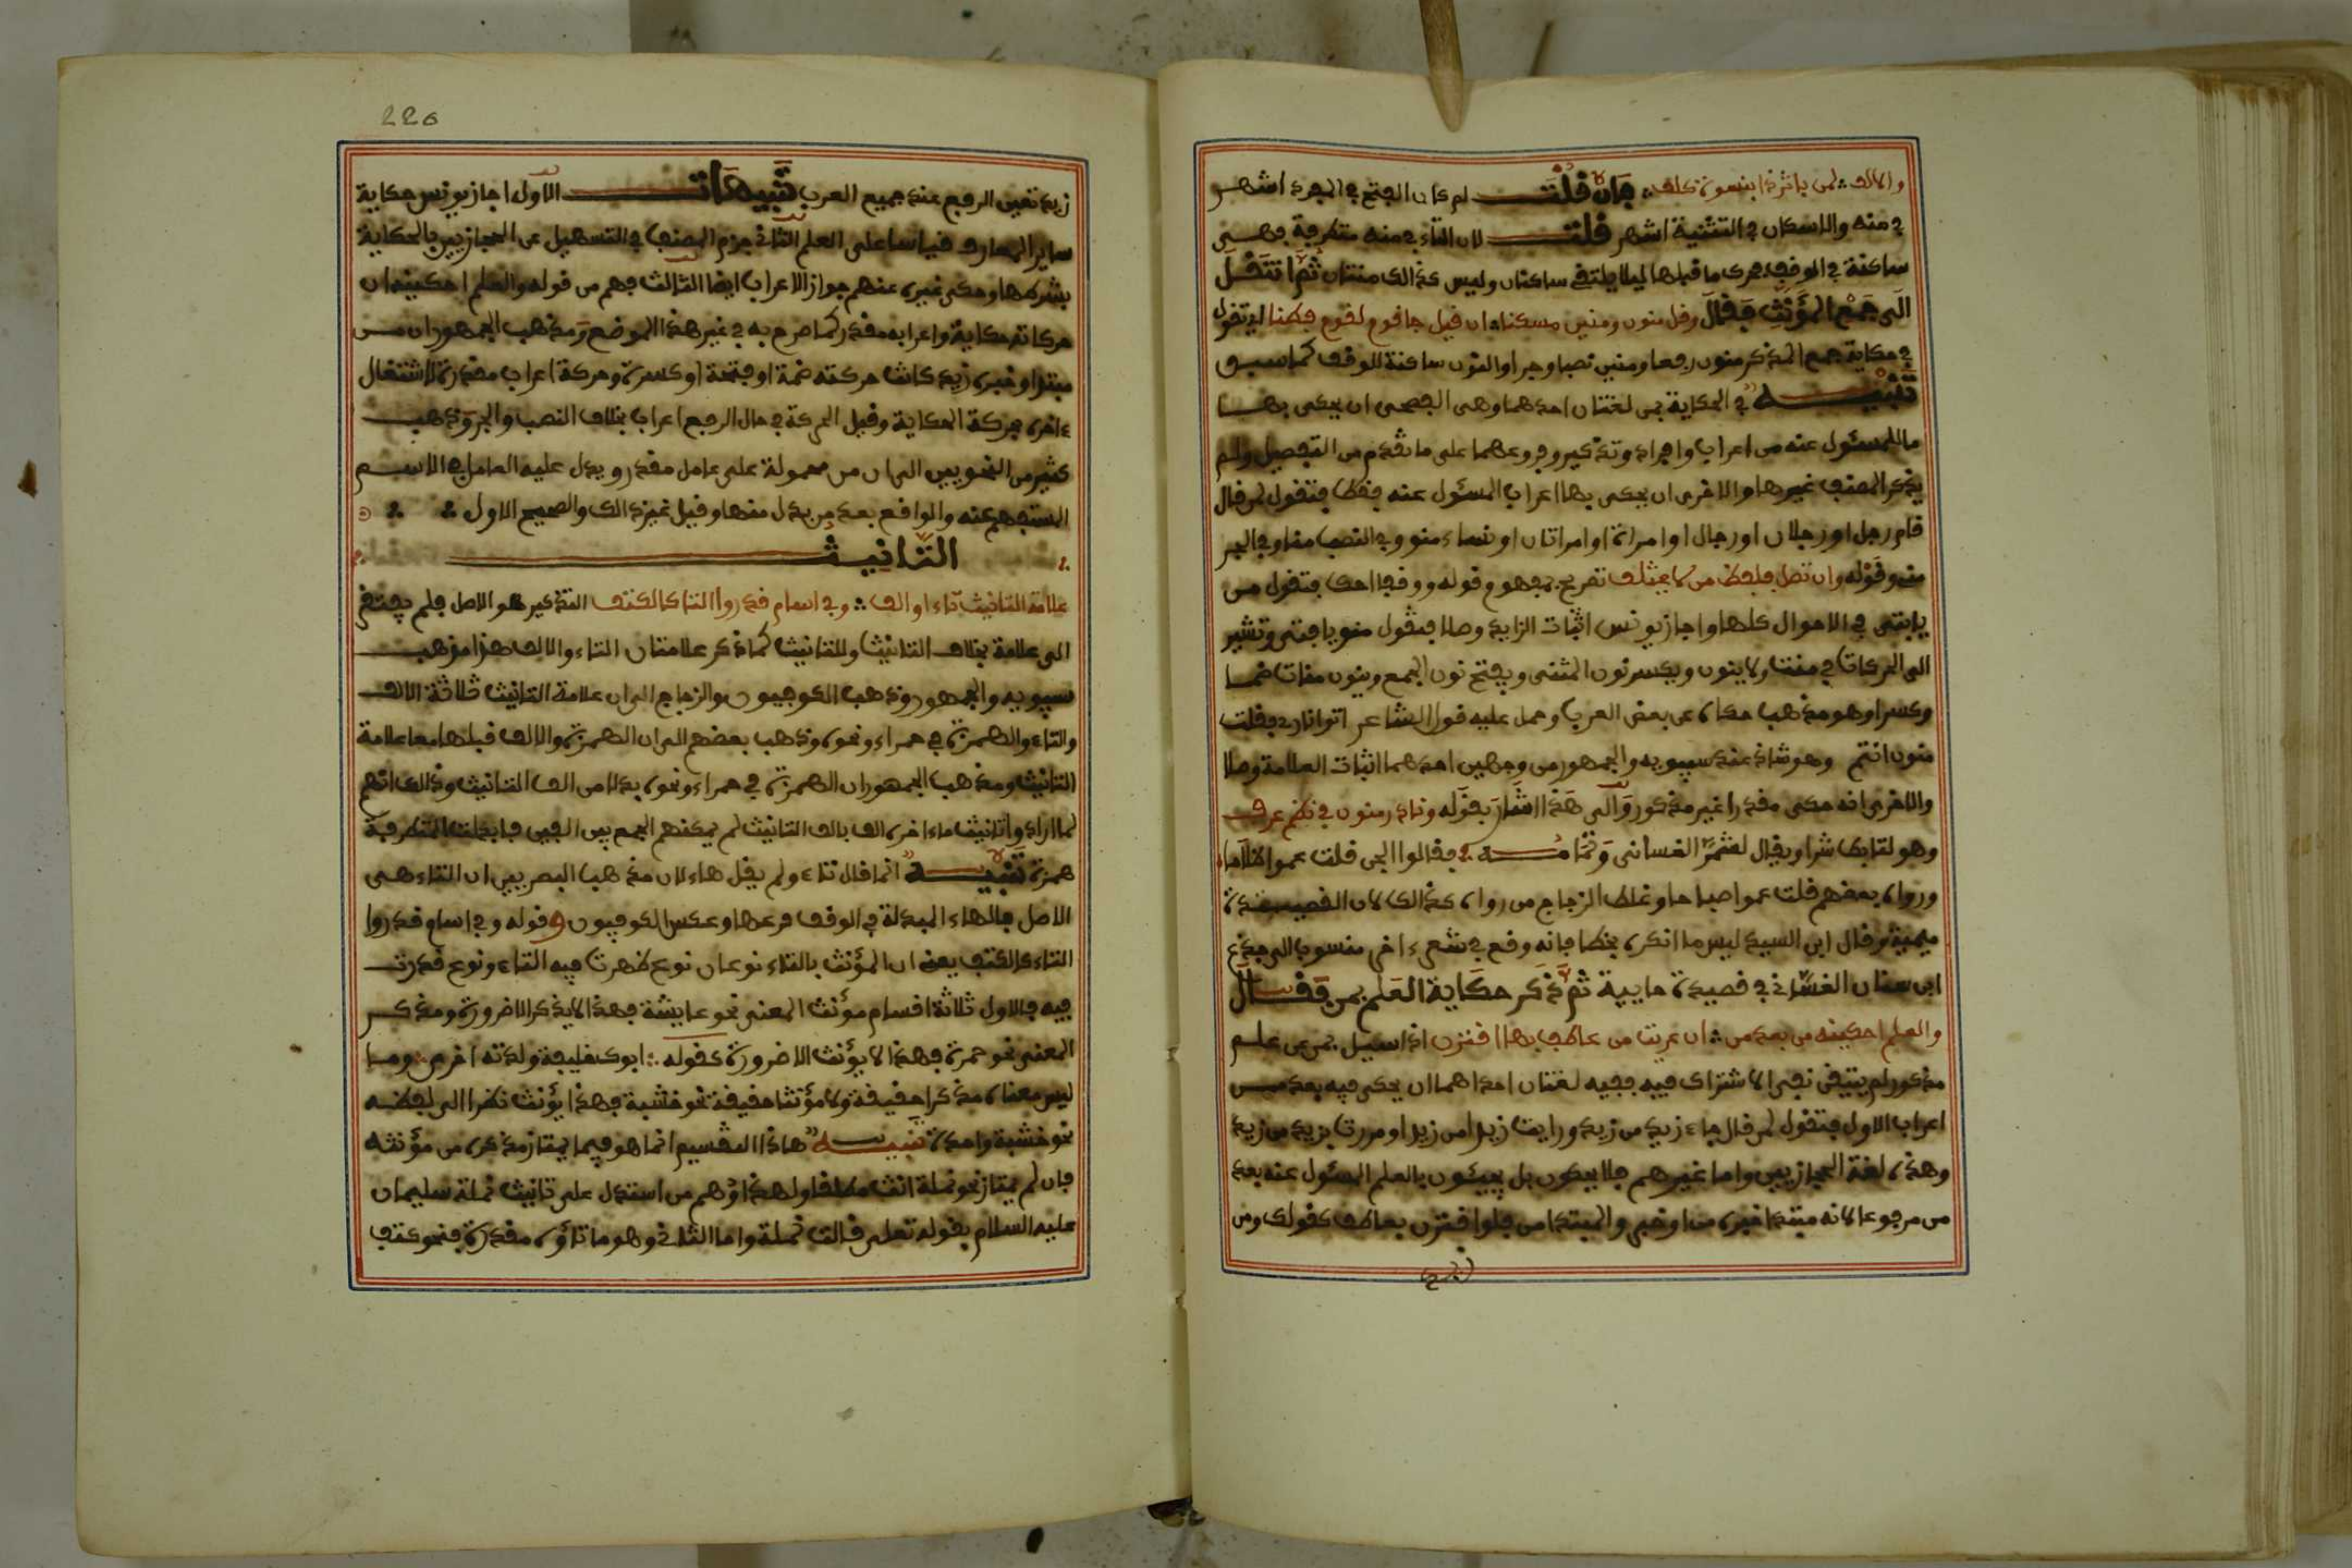 والالف لمن باثر ذا بنسوة كلف فإن قلت لم كان الفتح في المفرد اشهر
في منه والاسكان في التثنية اشهر قلت لان التاء في منه متطرفة وهي
ساكنة في الوقف فحرك ما قبلها ليلا يلتقي ساكنان وليس كذالك منتان ثم انتقل
الى جمع المؤنث فقال وقل منون ومنين مسكنا ان قيل جا قوم لقوم فطنا
في حكاية جمع المذكر منون رفعا ومنين نصبا وجرا والنون ساكنة للوقف كما سبق
تنبيه في الحكاية بمن لغتان احدهما وهي الفصحى ان يحكى بها
ما للمسئول عنه من اعراب وافراد وتذكير وفروعهما على ما تقدم من التفصيل ولم
يذكر المصنف غيرها والاخرى ان يحكى بها اعراب المسئول عنه فقط فتقول لمن قال
قام رجل او رجلان او رجال او امراة او امراتان او نساء منو وفي النصب منا وفي الجر
مني وقوله وان تصل فلفظ من لا يختلف تصريح بمفهوم قوله ووقفا احك فتقول من
يا فتى في الاحوال كلها واجاز يونس اثبات الزايد وصلا فتقول منو يا فتى وتشير
الى الحركات في منت ولا ينون ويكسر نون المثنى ويفتح نون الجمع وينون منات ضما
وكسرا وهو مذهب حكاه عن بعض العرب وحمل عليه قول الشاعر اتوا ناري فقلت
منون انتم وهو شاذ عند سيبويه والجمهور من وجهين احدهما اثبات العلامة وصلا
والاخرى انه حكى مقدرا غير مذكور والى هذا اشار بقوله ونادر منون في نظم عرف
وهو لتابط شرا ويقال لشمر الغساني وتمامه فقالوا الجن قلت عموا ظلاما
ورواه بعضهم قلت عموا صباحا وغلط الزجاج من رواه كذالك لان القصيدة
ميمية وقال ابن السيد ليس ما انكره بخطا فانه وقع في شعر اخر منسوب الى جذع
ابن سنان الغساني في قصيدة حايية ثم ذكر حكاية العلم بمن فقال
والعلم احكينه من بعد من ان عريت من عاطف بها اقترن اذا سيل بمن عن علم
مذكور لم يتيقن نفي الاشتراك فيه ففيه لغتان احداهما ان يحكى فيه بعد من
اعراب الاول فتقول لمن قال جاء زيد من زيد ورايت زيدا من زيدا ومررت بزيد من زيد
وهذه لغة الحجازيين واما غيرهم فلا يحكون بل يجيئون بالعلم المسئول عنه بعد
من مرفوعا لانه مبتدا خبره من او خبر والمبتدا من فلو اقترن بعاطف كقولك ومن
220
زيد تعين الرفع عند جميع العرب تنبيهات الاول اجاز يونس حكاية
ساير المعارف قياسا على العلم الثاني جزم المصنف في التسهيل عن الحجازيين بالحكاية
بشرطها وحكى غيره عنهم جواز الاعراب ايضا الثالث فهم من قوله والعلم احكينه ان
حركاته حكاية واعرابه مقدر كما صرح به في غير هذا الموضع ومذهب الجمهور ان من
مبتدا وخبره زيد كانت حركته ضمة او فتحة او كسرة وحركة اعراب مقدرة لاشتغال
ءاخره بحركة الحكاية وقيل الحركة في حال الرفع اعراب بخلاف النصب والجر وذهب
كثير من النحويين الى ان من محمولة على عامل مقدر ويدل عليه العامل في الاسم
المستفهم عنه والواقع بعد من بدل منها وقيل غير ذالك والصحيح الاول
التانيث
علامة التانيث تاء او الف وفي اسام قدروا التا كالكتف التذكير هو الاصل فلم يفتقر
الى علامة بخلاف التانيث وللتانيث كما ذكر علامتان التاء والالف هذا مذهب
سيبويه والجمهور وذهب الكوفيون والزجاج الى ان علامة التانيث ثلاثة الالف
والتاء والهمزة في حمراء ونحوه وذهب بعضهم الى ان الهمزة والالف قبلها معا علامة
التانيث ومذهب الجمهور ان الهمزة في حمراء ونحوه بدلا من الف التانيث وذالك انهم
لما ارادوا تانيث ماءاخره الف بالف التانيث لم يمكنهم الجمع بين الفين فابدلت المتطرفة
همزة تنبيه انما قال تاء ولم يقل هاء لان مذهب البصريين ان التاء هي
الاصل والهاء المبدلة في الوقف فرعها وعكس الكوفيون وقوله وفي اسام قدروا
التاء كالكتف يعني ان المؤنث بالتاء نوعان نوع ظهرت فيه التاء ونوع قدرت
فيه فالاول ثلاثة اقسام مؤنث المعنى نحو عايشة فهذا لا يذكر الا ضرورة ومذكر
المعنى نحو حمزة فهذا لا يؤنث الا ضرورة كقوله ابوك خليفة ولدته اخرى وما
ليس معناه مذكرا حقيقة ولا مؤنثا حقيقة نحو خشبة فهذا يؤنث نظرا الى لفظه
نحو خشبة واحدة تنبيه هاذا التقسيم انما هو فيما يمتاز مذكره من مؤنثه
فان لم يمتاز نحو نملة انث مطلقا ولهذا وهم من استدل على تانيث نملة سليمان
عليه السلام بقوله تعلى قالت نملة واما الثاني وهو ما تاؤه مقدرة فنحو كتف